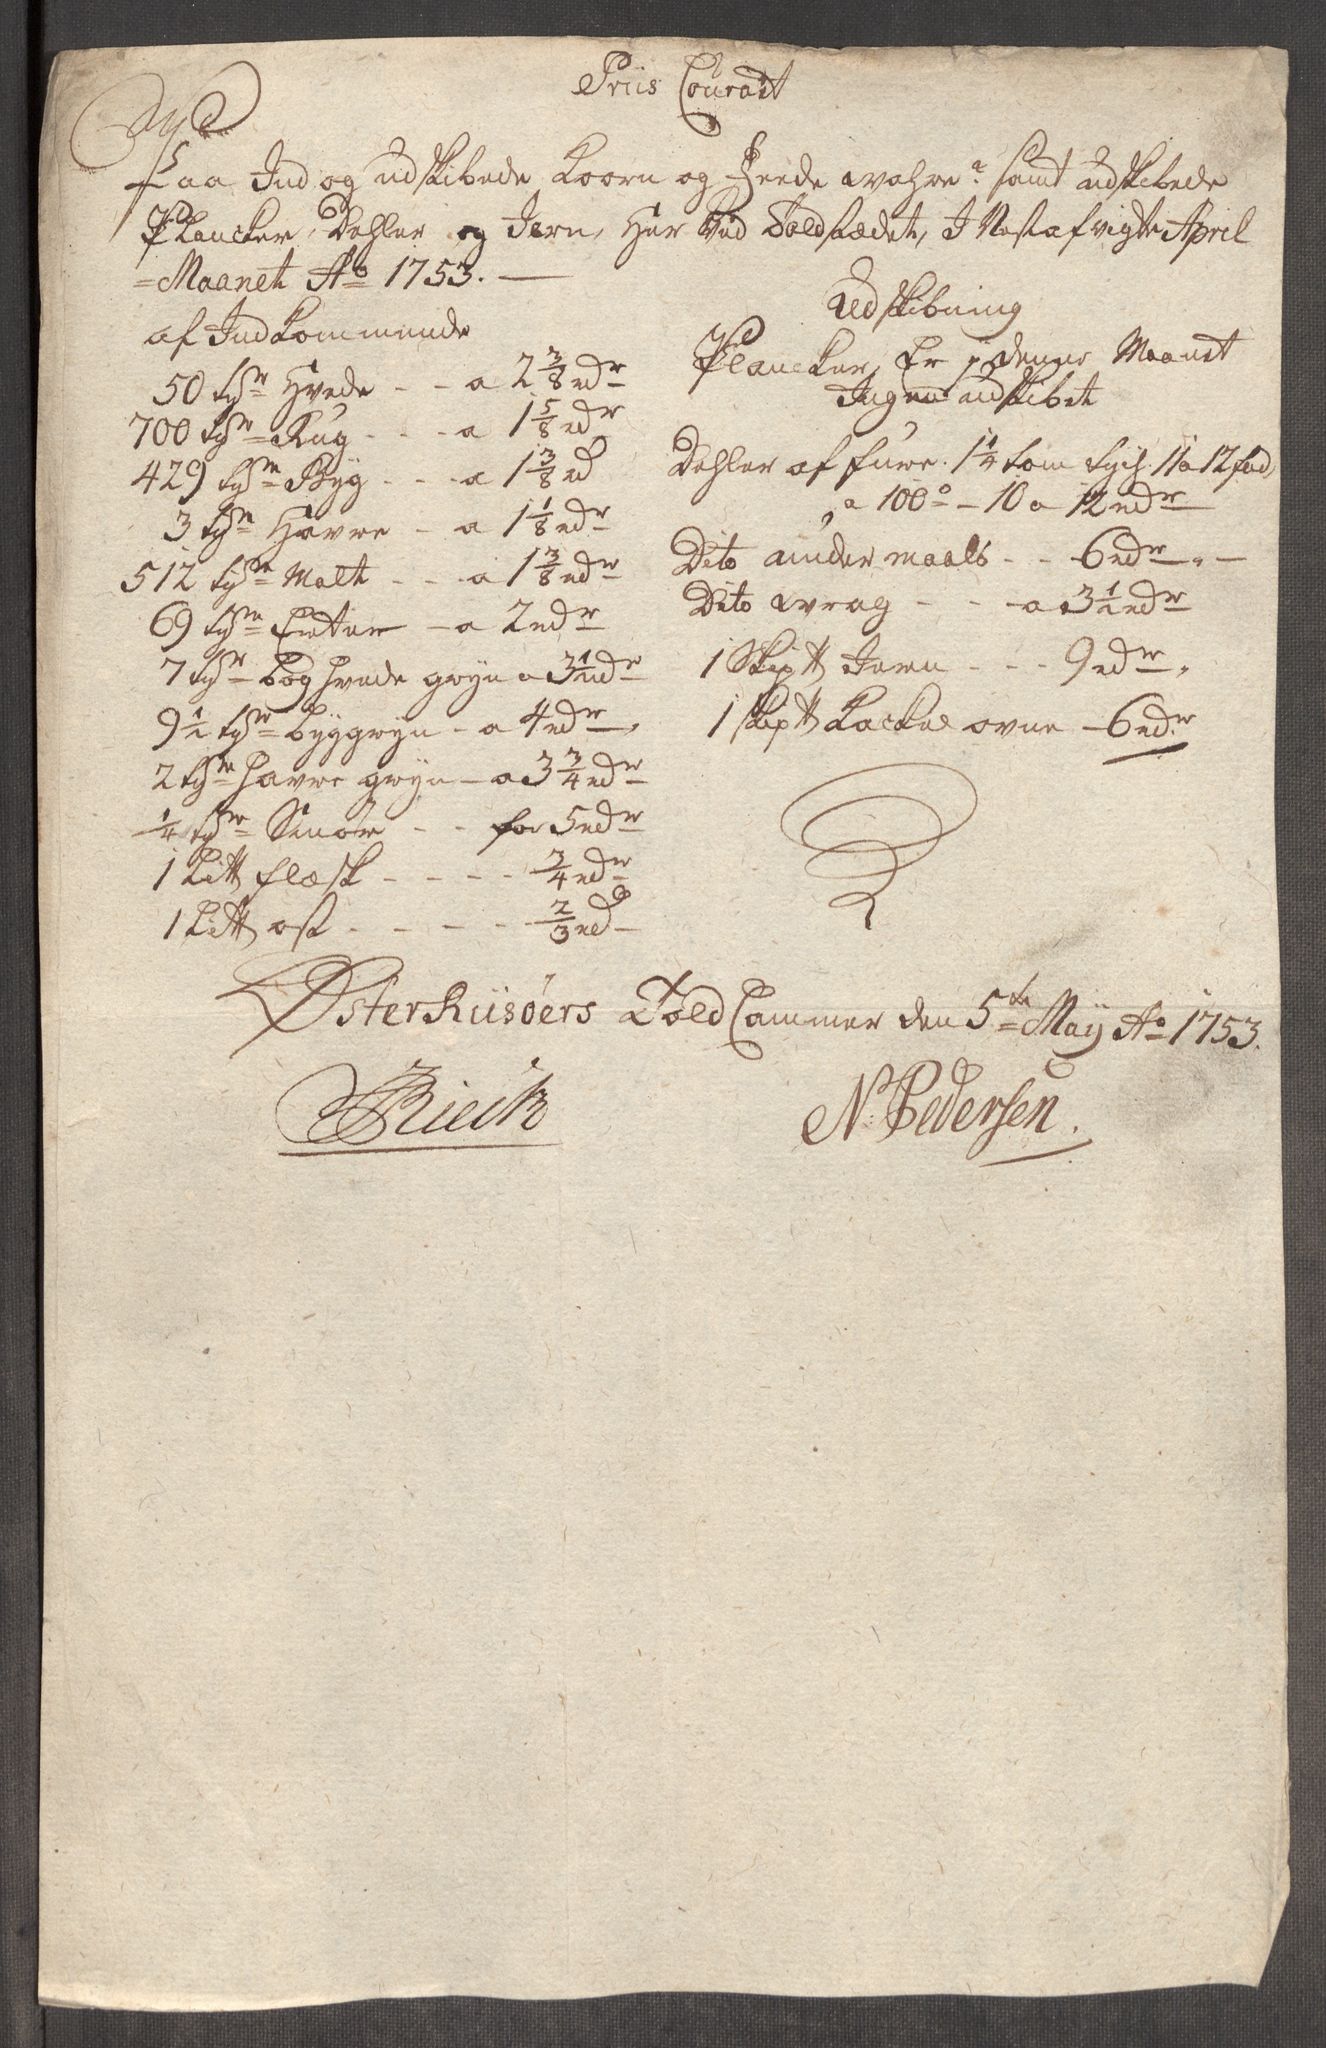 Priis Courant
Paa Ind og udskibede Koorn og Feede wahre samt udskibede
Plancker, Dehler og Jern, Her Ved Toldstædet, I Nest afvigte April
Maanet Ao 1753.
af Indkommende
50 tr Hvede - - a 2 3/8 rdr
700 tr Rug - - - a 1 5/8 rdr
429 tr Byg - - - a 1 3/8 rd
3 tr Havre - a 1 1/8 rdr
512 tr Malt - - - a 1 3/8 rdr
69 tr Erter - a 2 rdr
7 tr boghvede gryn a 3 1/2 rdr
9 1/2 tr byggryn - a 4 rdr
2 tr havre gryn - a 3 3/4 rdr
1/4 tr Smör - - for 5 rdr
1 Litt flæsk - - - - 3/4 rdr
1 Litt ost - - - - 2/3 rd
Udskibning
Plancker, Er j denne Maanet
Ingen udskibet
Dehler af fure 1 1/4 tom tych 11 a 12 fod,
a 100 - 10 a 12 rdr
Dito under maals - - 6 rdr
Dito wrag - - - a 3 1/2 rdr
1 Skiptt Jern - - - 9 rdr
1 skiptt Kackel ovne - 6 rdr
Østerriisöers Told Cammer den 5te Maÿ Ao 1753.
N. Pedersen.